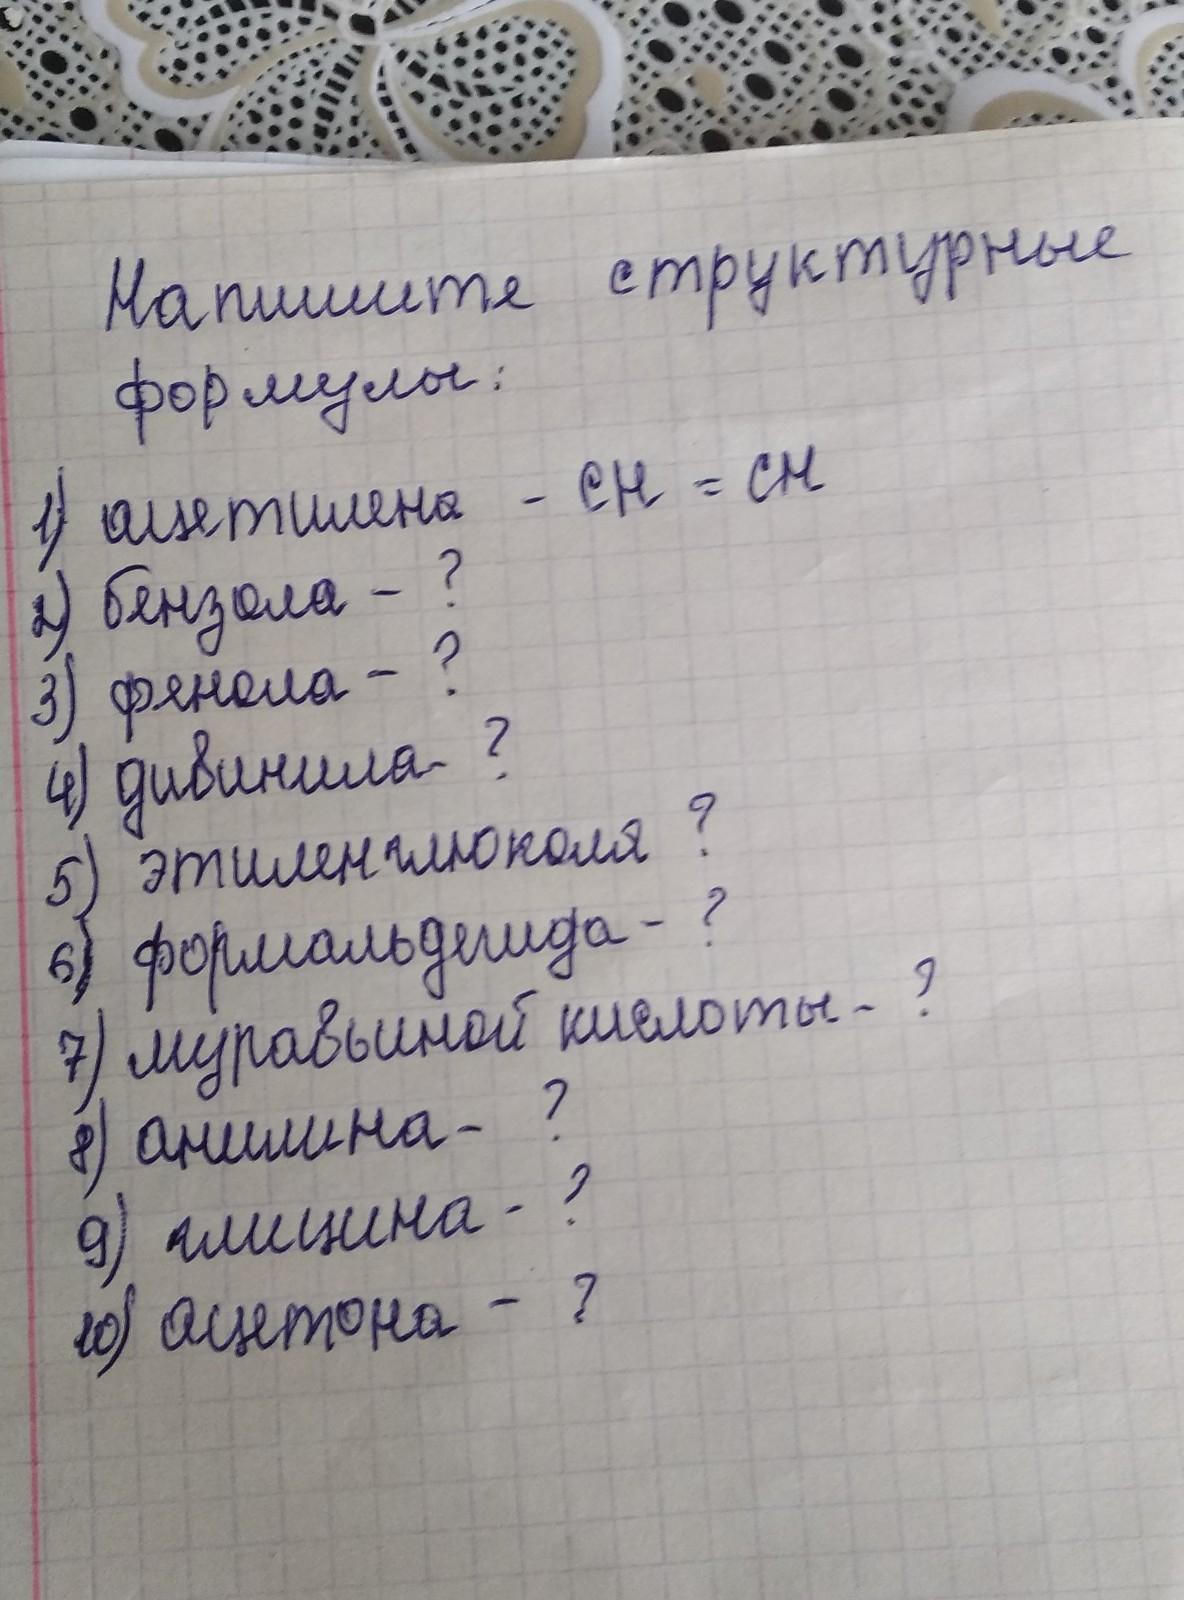 Напишите структурные
формулы:
1) ацетилена - CH = CH
2) бензола - ?
3) фенола - ?
4) дивинила - ?
5) этиленглюколя ?
6) формальдегида - ?
7) муравьиной кислоты - ?
8) анилина - ?
9) глицина - ?
10) ацетона - ?